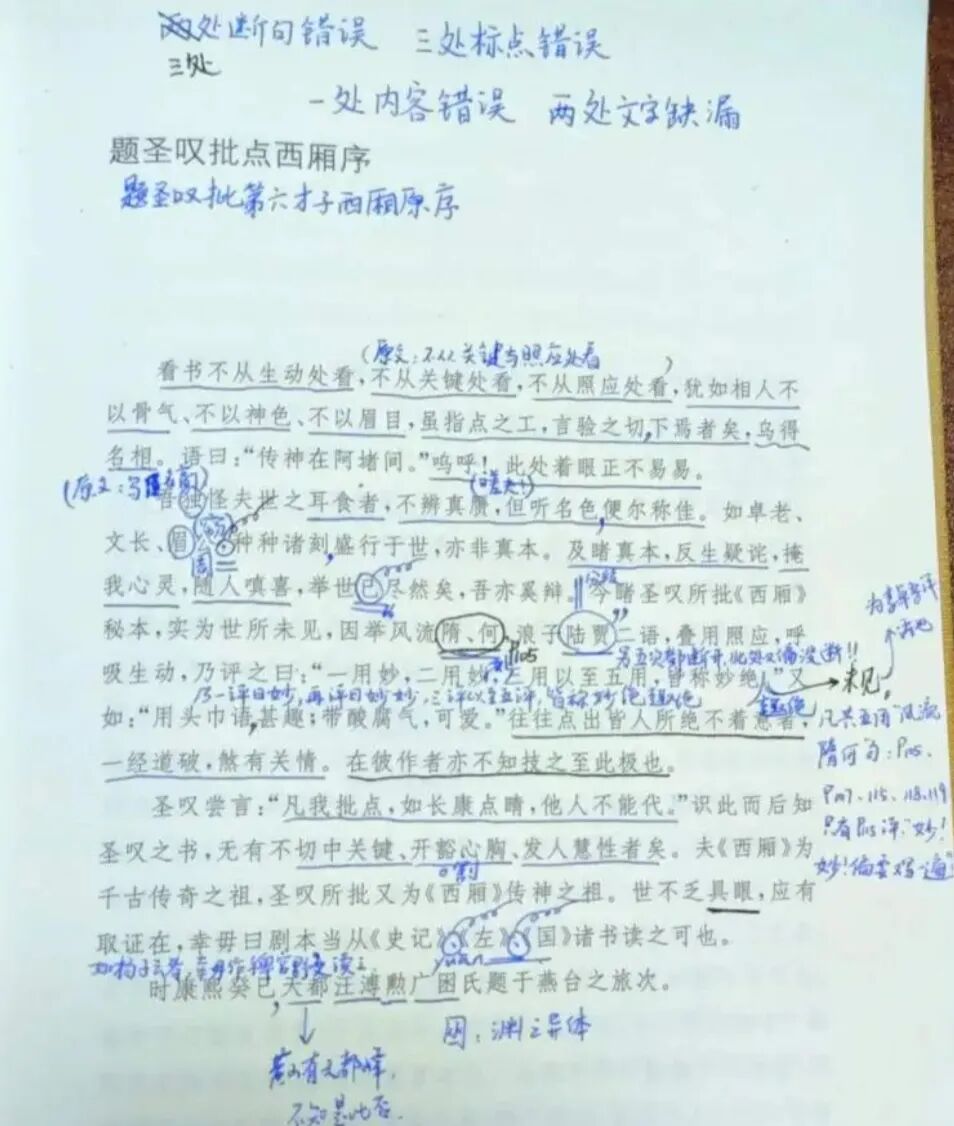 两处断句错误 三处标点错误
三处
一处内容错误 两处文字缺漏
题圣叹批点西厢序
题圣叹批第六才子西厢原序
(原文:不从关键与照应处看)
看书不从生动处看,不从关键处看,不从照应处看,犹如相人不
以骨气、不以神色、不以眉目,虽指点之工,言验之切,下焉者矣,乌得
名相。语曰:“传神在阿堵间。”呜呼!此处着眼正不易易。
(嗟夫!)
吾独怪夫世之耳食者,不辨真赝,但听名色,便尔称佳。如卓老、
文长、眉公种种诸刻,盛行于世,亦非真本。及睹真本,反生疑诧,掩
我心灵,随人嗔喜,举世已尽然矣,吾亦奚辩。今睹圣叹所批《西厢》
秘本,实为世所未见,因举风流隋、何,浪子陆贾二语,叠用照应,呼
另五穴都断开,此处又偏没断!!
吸生动,乃评之曰:“一用妙,二用妙,三用以至五用,皆称妙绝。”又
乃一评曰妙,再评曰妙妙,三评以至五评,皆称妙绝趣绝
趣绝
未见。
如:“用头巾语甚趣;带酸腐气,可爱。”往往点出皆人所绝不着意者,
一经道破,煞有关情。在彼作者亦不知技之至此极也。
凡共五用“风流
隋何”句:P105.
P107、115、118、119
只有P115评“妙!
圣叹尝言:“凡我批点,如长康点睛,他人不能代。”识此而后知
圣叹之书,无有不切中关键、开豁心胸、发人慧性者矣。夫《西厢》为
千古传奇之祖,圣叹所批又为《西厢》传神之祖。世不乏具眼,应有
取证在,幸毋曰剧本当从《史记》《左》《国》诸书读之可也。
时康熙癸巳天都汪溥勲广囦氏题于燕台之旅次。
囦:渊之异体
黄山有天都峰,
不知是此否.